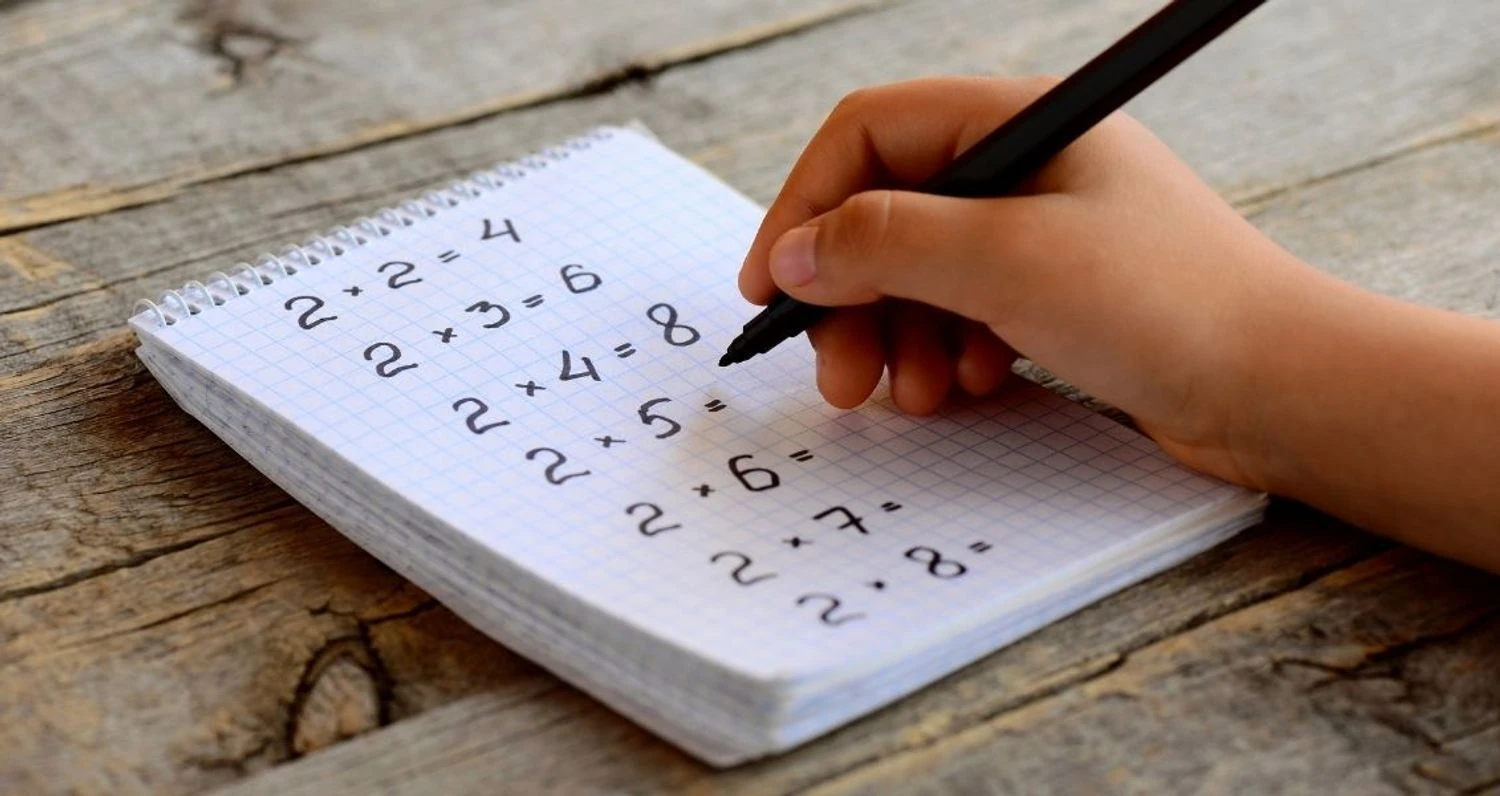 2 × 2 = 4
2 × 3 = 6
2 × 4 = 8
2 × 5 =
2 × 6 =
2 × 7 =
2 × 8 =